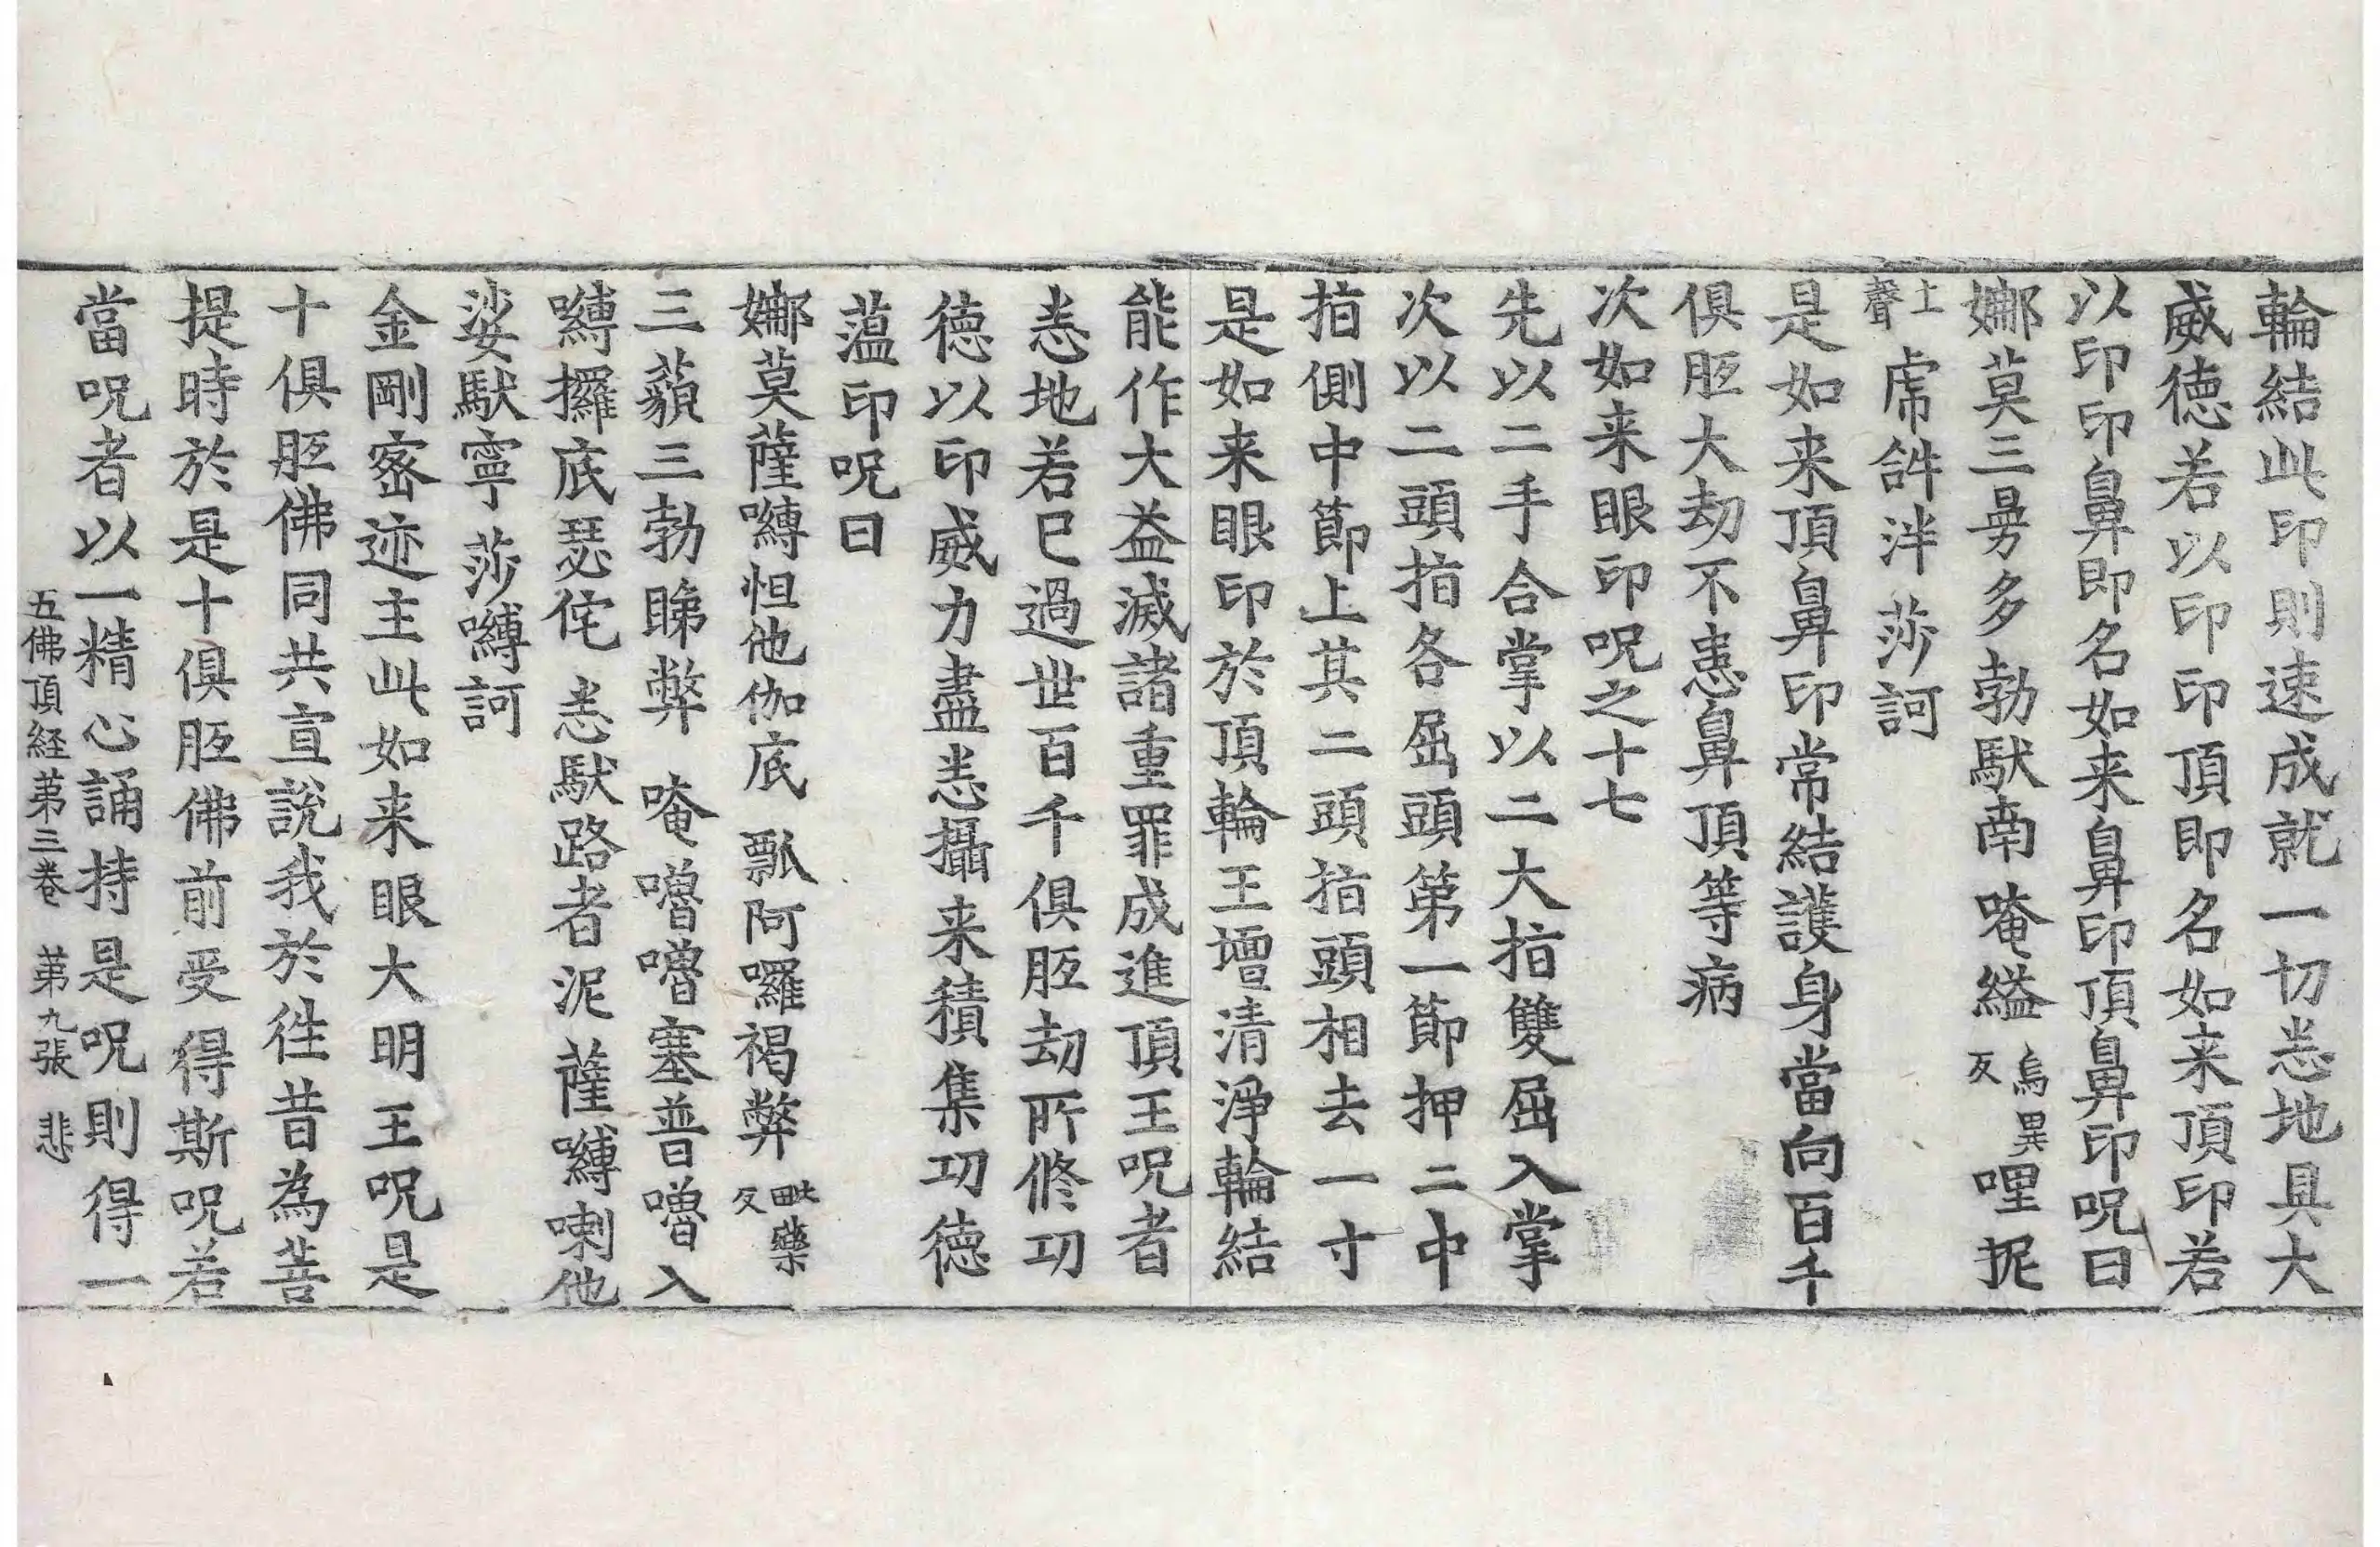 輪結此印則速成就一切悉地具大
威徳若以印印頂即名如来頂印若
以印印鼻即名如来鼻印頂鼻印呪曰
娜莫三曼多勃馱南 唵縊烏異反哩抳
上聲虎𤙖泮 莎訶
是如来頂鼻印常結護身當向百千
俱胝大劫不患鼻頂等病
次如来眼印呪之十七
先以二手合掌以二大指雙屈入掌
次以二頭指各屈頭第一節押二中
指側中節上其二頭指頭相去一寸
是如来眼印於頂輪王壇清淨輪結
能作大益滅諸重罪成進頂王呪者
悉地若已過世百千俱胝劫所修功
徳以印威力盡悉攝来積集功徳
薀印呪曰
娜莫薩嚩怛他伽底 瓢阿囉褐弊毗藥反
三藐三勃睇弊 唵嚕嚕塞普嚕入
嚩攞底瑟侘 悉馱路者泥 薩嚩喇他
娑馱寧 莎嚩訶
金剛密迹主此如来眼大明王呪是
十俱胝佛同共宣說我於徃昔為菩
提時於是十俱胝佛前受得斯呪若
當呪者以一精心誦持是呪則得一
五佛頂経第三卷 第九張 悲